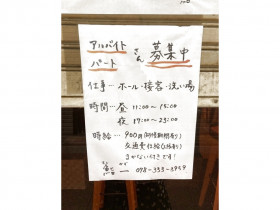 アルバイト
パート さん 募集中
仕事…ホール・接客・洗い場
時間…昼 11:00〜15:00
夜 17:00〜23:00
時給…900円(研修期間有り)
交通費支給(上限有り)
まかないつきです!
鮨一 078-333-